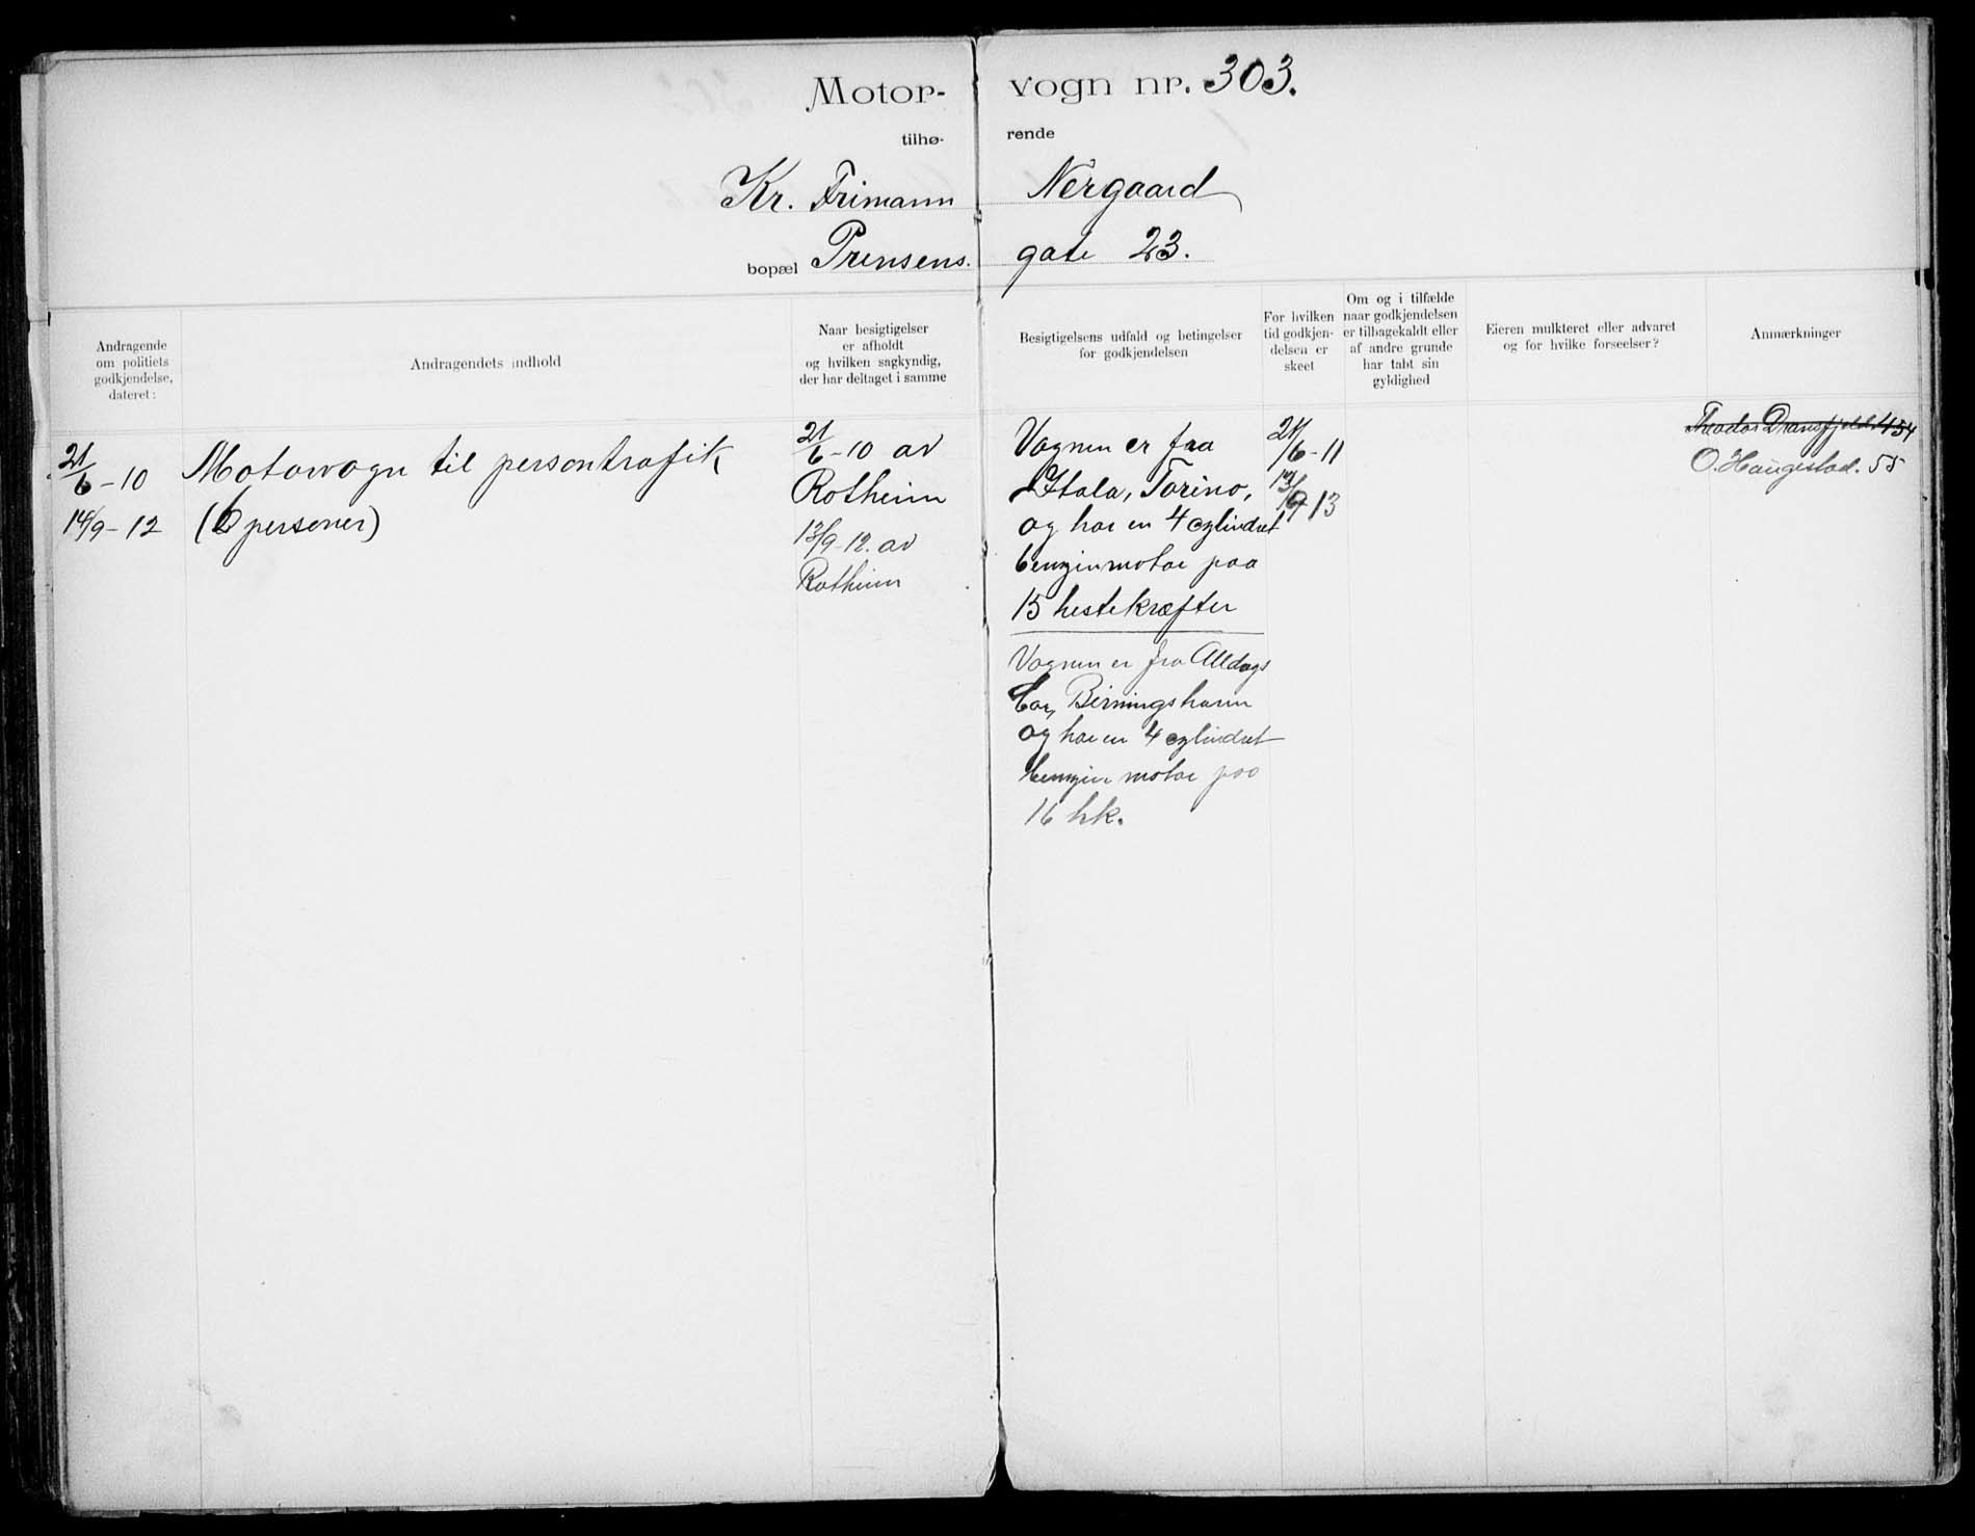 Motor-vogn nr. 303.
tilhø-rende
Kr. Frimann Nergaard
bopæl Prinsens. gate 23.
Andragende
om politiets
godkjendelse,
dateret:
Andragendets indhold
Naar besigtigelser
er afholdt
og hvilken sagkyndig,
der har deltaget i samme
Besigtigelsens udfald og betingelser
for godkjendelsen
For hvilken
tid godkjen-
delsen er
skeet
Om og i tilfælde
naar godkjendelsen
er tilbagekaldt eller
af andre grunde
har tabt sin
gyldighed
Eieren mulkteret eller advaret
og for hvilke forseelser?
Anmærkninger
21/6-10
14/9-12
Motorvogn til persontrafik
(6 personer)
21/6-10 av
Rotheim
13/9-12. av
Rotheim
Vognen er fra
Itala, Torino,
og har en 4 cylindret
benzinmotor paa
15 hestekræfter
Vognen er fra Alldags
Co, Birmingsham
og har en 4 cylindret
benzin motor paa
16 hk.
21/6-11
13/9-13
Theodor 454
O. Haugestad. 55